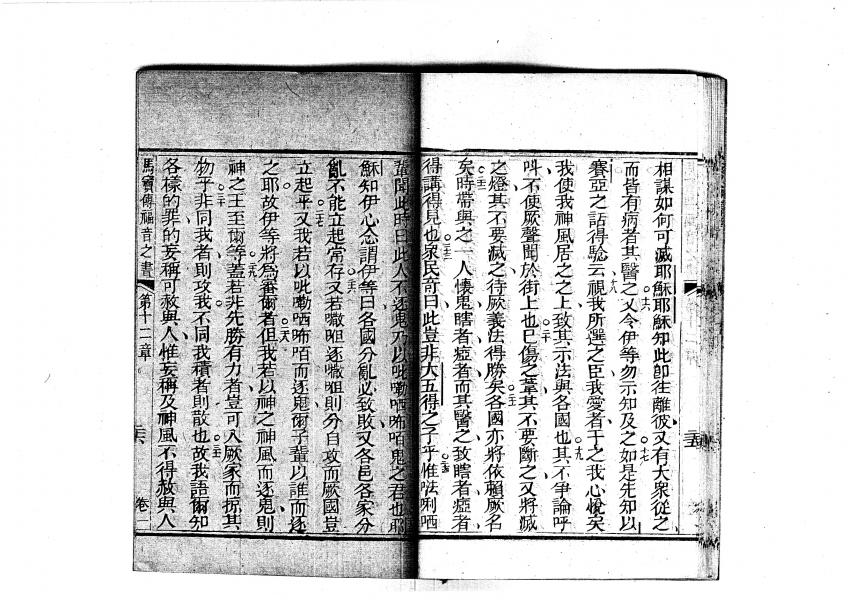 相謀如何可滅耶穌耶穌知此卽往離彼又有大衆從之
而皆有病者其醫之又令伊等勿示知及之如是先知以
賽亞之話得驗云視我所選之臣我愛者于之我心悅矣
我使我神風居之之上致其示法與各國也其不爭論呼
叫不使厥聲聞於街上也已傷之葦其不要斷之又將滅
之燈其不要滅之待厥義法得勝矣各國亦將依賴厥名
矣時帶與之一人悽鬼瞎者瘂者而其醫之致瞎者瘂者
得講得見也衆民奇曰此豈非大五得之子乎惟𠵽唎哂
輩聞此時曰此人不逐鬼乃以吡嘞哂咘咟鬼之君也耶
穌知伊心念謂伊等曰各國分亂必致敗又各邑各家分
亂不能立起常存又若㘔呾逐㘔呾則分自攻而厥國豈
立起乎又我若以吡嘞哂咘咟而逐鬼爾子輩以誰而逐
之耶故伊等將爲審爾者但我若以神之神風而逐鬼則
神之王至爾等蓋若非先勝有力者豈可入厥家而掠其
物乎非同我者則攻我不同我積者則散也故我語爾知
各樣的罪的妄稱可赦與人惟妄稱及神風不得赦與人
馬竇傳福音之書
第十二章
卷一